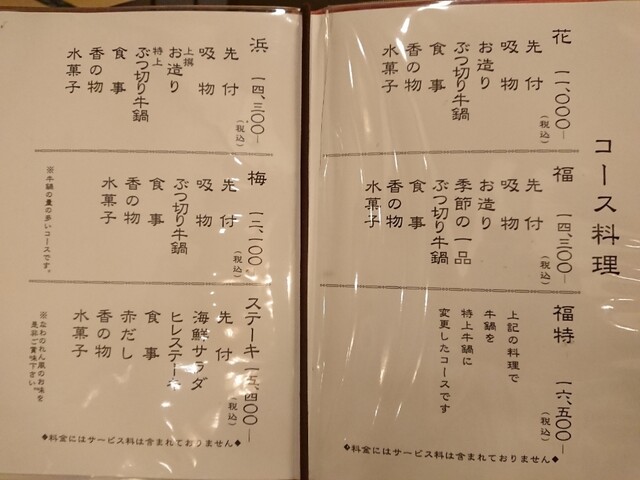 コース料理
花 一一、〇〇〇―
(税込)
先付
吸物
お造り
ぶつ切り牛鍋
食事
香の物
水菓子
福 一四、三〇〇―
(税込)
先付
吸物
お造り
季節の一品
ぶつ切り牛鍋
食事
香の物
水菓子
福特 一六、五〇〇―
(税込)
上記の料理で
牛鍋を
特上牛鍋に
変更したコースです
◆料金にはサービス料は含まれておりません◆
浜 一四、三〇〇―
(税込)
先付
吸物
上撰
お造り
特上
ぶつ切り牛鍋
食事
香の物
水菓子
梅 一二、一〇〇―
(税込)
先付
吸物
ぶつ切り牛鍋
食事
香の物
水菓子
※牛鍋の量の多いコースです。
ステーキ 一五、四〇〇―
(税込)
先付
海鮮サラダ
ヒレステーキ
食事
赤だし
香の物
水菓子
※なわのれん風のお味を
是非ご賞味下さい。
◆料金にはサービス料は含まれておりません◆